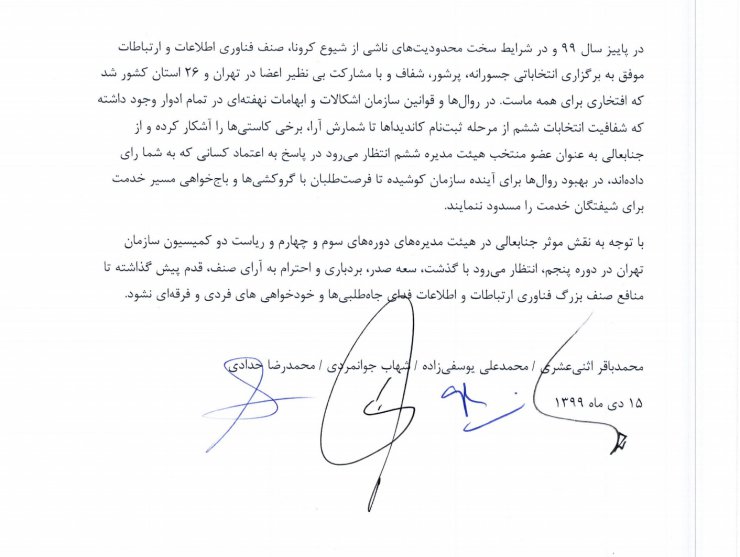 در پاییز سال ۹۹ و در شرایط سخت محدودیت‌های ناشی از شیوع کرونا، صنف فناوری اطلاعات و ارتباطات
موفق به برگزاری انتخاباتی جسورانه، پرشور، شفاف و با مشارکت بی نظیر اعضا در تهران و ۲۶ استان کشور شد
که افتخاری برای همه ماست. در روال‌ها و قوانین سازمان اشکالات و ابهامات نهفته‌ای در تمام ادوار وجود داشته
که شفافیت انتخابات ششم از مرحله ثبت‌نام کاندیداها تا شمارش آرا، برخی کاستی‌ها را آشکار کرده و از
جنابعالی به عنوان عضو منتخب هیئت مدیره ششم انتظار می‌رود در پاسخ به اعتماد کسانی که به شما رای
داده‌اند، در بهبود روال‌ها برای آینده سازمان کوشیده تا فرصت‌طلبان با گروکشی‌ها و باج‌خواهی مسیر خدمت
برای شیفتگان خدمت را مسدود ننمایند.
با توجه به نقش موثر جنابعالی در هیئت مدیره‌های دوره‌های سوم و چهارم و ریاست دو کمیسیون سازمان
تهران در دوره پنجم، انتظار می‌رود با گذشت، سعه صدر، بردباری و احترام به آرای صنف، قدم پیش گذاشته تا
منافع صنف بزرگ فناوری ارتباطات و اطلاعات فدای جاه‌طلبی‌ها و خودخواهی های فردی و فرقه‌ای نشود.
محمدباقر اثنی‌عشری / محمدعلی یوسفی‌زاده / شهاب جوانمردی / محمدرضا حدادی
۱۵ دی ماه ۱۳۹۹